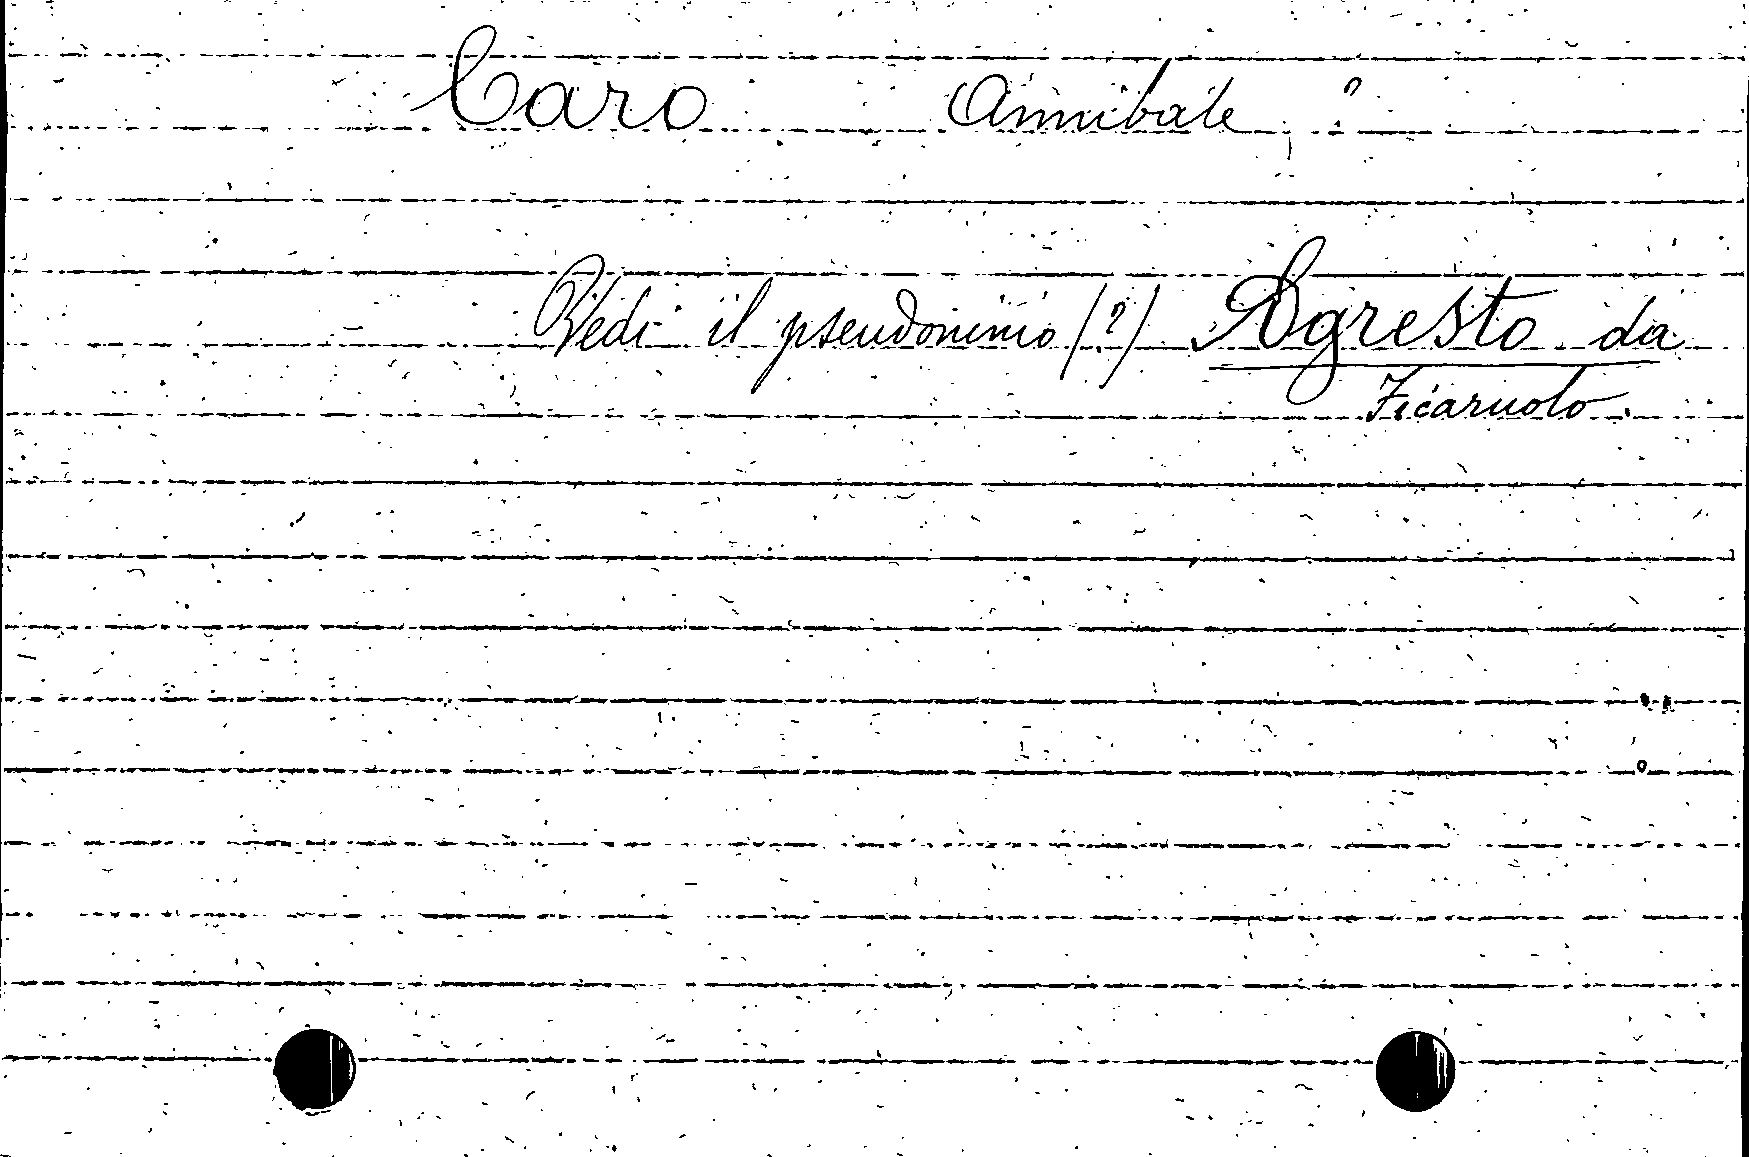 Caro Annibale, ?
Vedi il pseudonimo (?) Agresto da
Ficaruolo.